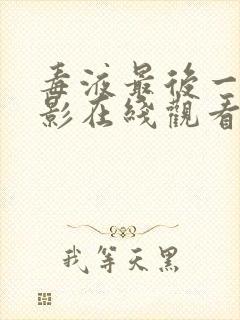 毒液最後一
影在綫觀看
我等天黑